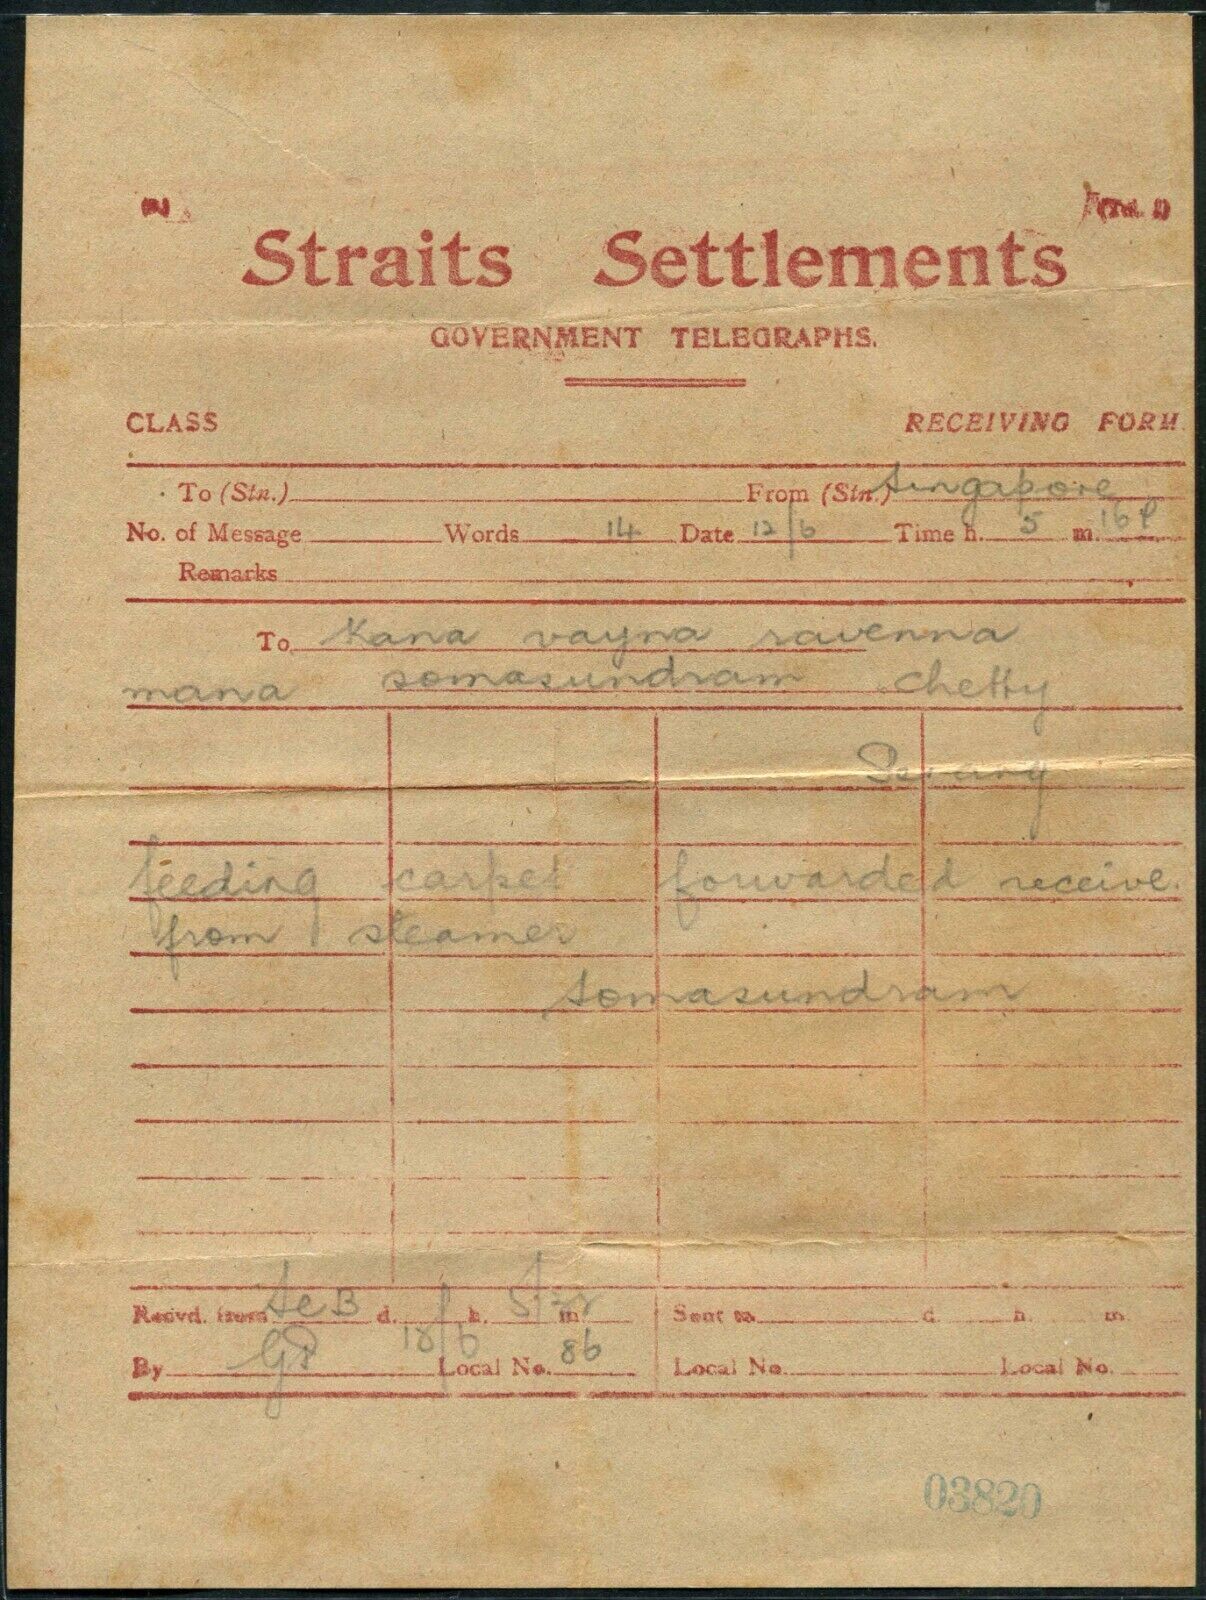 Straits Settlements
GOVERNMENT TELEGRAPHS.
CLASS RECEIVING FORM
To (Stn.) From (Stn.) Singapore
No. of Message Words 14 Date 12/6 Time h. 5 m. 16 P
Remarks
To Kana vayna ravenna
mana somasundram chetty
Penang
feeding carpet forwarded receive.
from steamer
Somasundram
Recvd. from d. h. m. Sent to d. h. m.
By GP Local No. 86 Local No. Local No.
03820